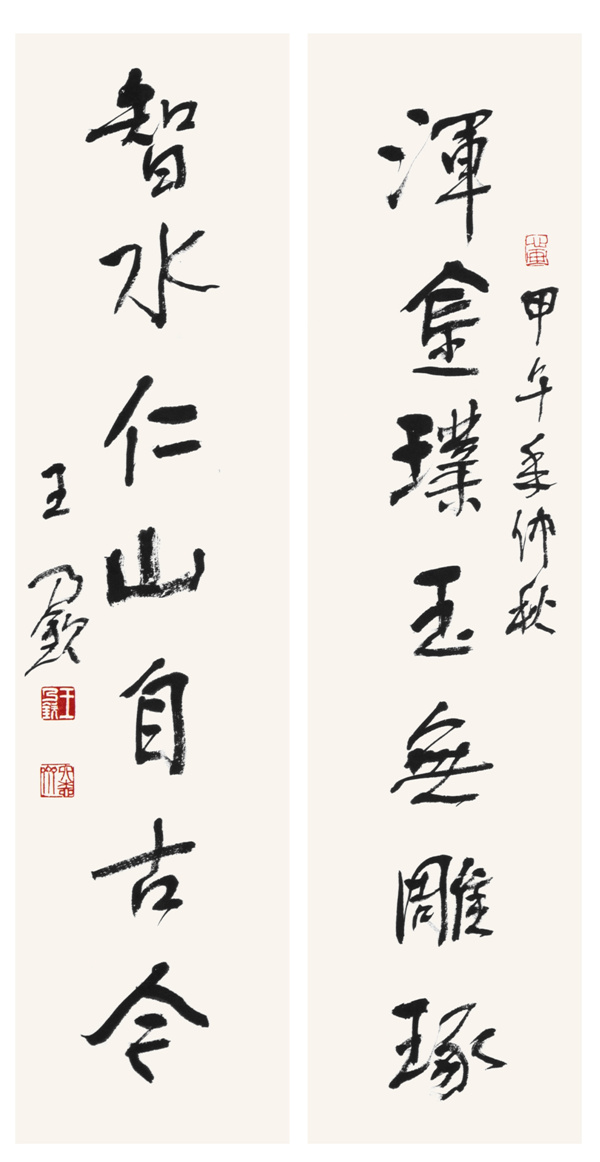 甲午年仲秋
渾金璞玉無雕琢
智水仁山自古今
王乃欽